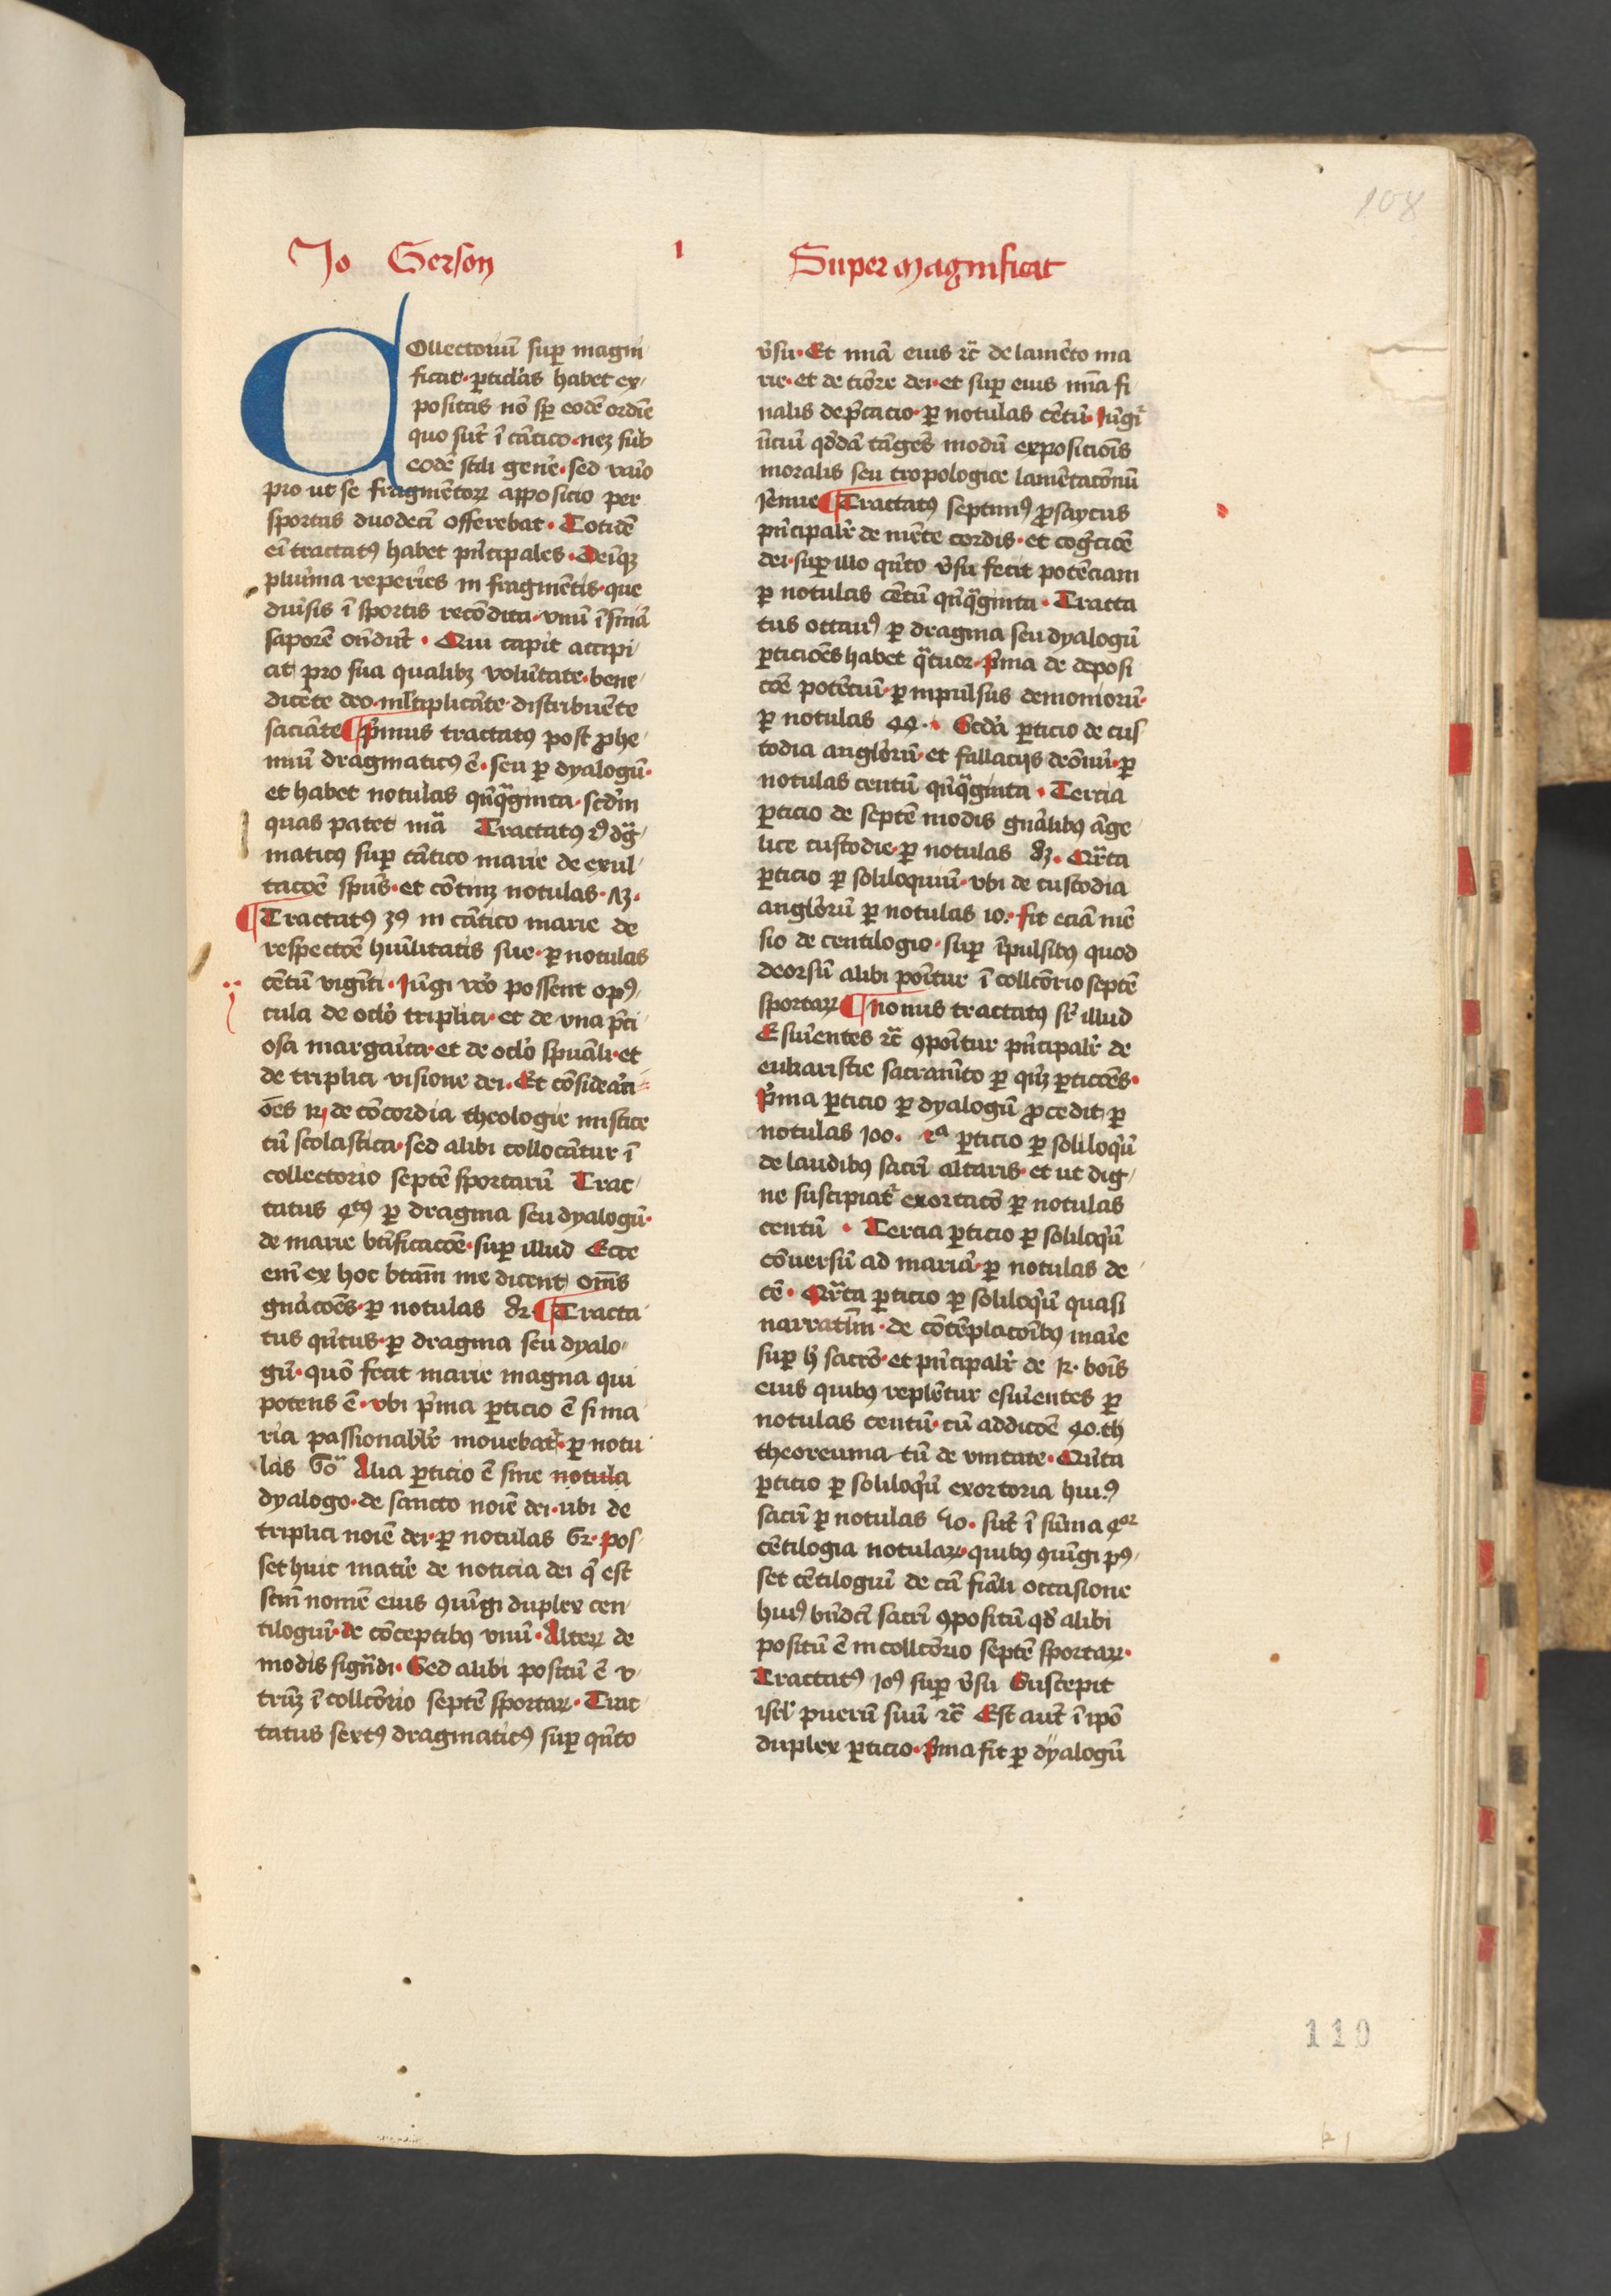 108
Jo Gerson 1 Super magnificat
COllectoriū suꝑ magni
ficat · ꝑticl'as habet ex⸗
positas nō sꝑ eodē ordīe
quo sūt ī cātico · neꝫ sub
eodē stili gen'e · sed var'o
pro ut se fragmētoꝝ apposicio per
sportas duodecī offerebat · Totidē
eī tractatꝰ habet pn'cipales · Deīqꝫ
plur'ma reperies in fragmētis · que
diu'sis ī sportis recōdita · vnū ī sm̄a
saporē on̄dūt · Qui capit accipi
at pro sua qualibꝫ volūtate · bene⸗
dicēte deo · ml'tiplicāte · distribuēte
saciāte ¶ P'mus tractatꝰ post ꝓhe⸗
miū dragmaticꝰ ē · seu ꝑ dyalogū ·
et habet notulas qn'qᵃginta · scd'm
quas patet mā Tractatꝰ 2ꝰ dᵃg⸗
maticꝰ suꝑ cātico marie de exul⸗
tacōē spūs · et cōtinꝫ notulas · 73 ·
¶ Tractatꝰ 3ꝰ in cātico marie de
respectōē hūilitatis sue · ꝑ notulas
cētū vigīti · Jūgi vēo possent opꝰ⸗
cula de oclō triplici · et de vna p̄ci
osa margar'ta · et de oclō spūali · et
de triplici visione dei · Et cōsiderāci⸗
ōēs 12 de cōcordia theologie mistice
cū scolastica · sed alibi collocātur ī
collectorio septē sportarū Trac⸗
tatus 4tꝰ ꝑ dragma seu dyalogū ·
de marie btīficacōē · suꝑ illud Ecce
enī ex hoc btām me dicent om̄s
gnācōēs · ꝑ notulas 82 ¶ Tracta
tus qn'tus · ꝑ dragma seu dyalo⸗
gū · quō fecit marie magna qui
potens ē · vbi p'ma ꝑticio ē si ma
ria passionabl'r mouebat᷑ · ꝑ notu
las 60 Alia ꝑticio ē sine notula
dyalogo · de sancto noīe dei · ubi de
triplici noīe dei · ꝑ notulas 62 · pos⸗
set huic mat'ie de noticia dei q̄ est
sctm̄ nomē eius ꝯiūgi duplex cen⸗
tilogiū · de cōceptibꝰ vnū · Alteꝝ de
modis sign̄di · Sed alibi positū ē v⸗
trūꝫ ī collc̄orio septē sportaꝝ · Trac⸗
tatus sextꝰ dragmaticꝰ suꝑ qn'to
v̄su · Et mīa eius ⁊c̄ de lamēto ma
rie · et de timōre dei · et suꝑ eius mīa fi
nalis dep̄cacio · ꝑ notulas cētū · Jūgit᷑
īiciū qd'dā tāgēs modū exposicōis
moralis seu tropologice lamētacōnū
ieremie ¶ Tractatꝰ septimꝰ ꝓsaycus
pn'cipalr̄ de mēte cordis · et cogc̄ōē
dei · suꝑ illo qn'to v̄su fecit potēciam
ꝑ notulas cētū qn'qᵃginta · Tracta
tus octauꝰ ꝑ dragma seu dyalogū
ꝑticiōēs habet qᵃtuor · p'ma de deposi
cōē potētiū · ꝑ inpulsus demoniorū ·
ꝑ notulas 44 · Secd'a ꝑticio de cus⸗
todia angl'orū · et fallacijs deōnū · ꝑ
notulas centū qn'qᵃginta · Tercia
ꝑticio de septē modis gnāl'ibꝰ āge⸗
lice custodie · ꝑ notulas 83 · Qᵃrta
ꝑticio ꝑ soliloquiū · vbi de custodia
angl'orū ꝑ notulas 10 · fit eciā mē
sio de centilogio · suꝑ īpulsibꝰ quod
deorsū alibi ponītur ī collc̄orio septē
sportaꝝ ¶ Nonus tractatꝰ sr̄ illud
Esuriētes ⁊c̄ ꝯponītur pn'cipalr̄ de
eukaristie sacramēto ꝑ qn'qꝫ ꝑticōēs ·
P'ma ꝑticio ꝑ dyalogū ꝓcedit ꝑ
notulas 100 · 2ᵃ ꝑticio ꝑ soliloqū
de laudibꝰ sacrī altaris · et ut dig⸗
ne suscipiat᷑ exortacō ꝑ notulas
centū · Tercia ꝑticio ꝑ soliloqū
cōuersū ad mariā · ꝑ notulas de
cē · Qᵃrta ꝑticio ꝑ soliloqū quasi
narratīm · de cōtēplacōibꝰ mar'e
suꝑ h' sacrō · et pn'cipalr̄ de 12 · boīs
eius quibꝰ replētur esuriētes ꝑ
notulas centū · cū addicōē 40 · th
theoreuma tū de vnitate · Qn'ta
ꝑticio ꝑ soliloqū exortoria huiꝰ
sacrī ꝑ notulas 50 · sūt ī sūma 4or
cētilogia notulaꝝ · quibꝰ ꝯiūgi pꝰ⸗
set cētilogiū de cā fīali occasione
huiꝰ bn̄dcī sacrī ꝯpositū qd' alibi
positū ē in collc̄orio septē sportaꝝ ·
Tractatꝰ 10ꝰ suꝑ v̄su Suscepit
isrl' puerū suū ⁊c̄ Est aūt ī ipō
duplex ꝑticio · p'ma fit ꝑ dyalogū
110